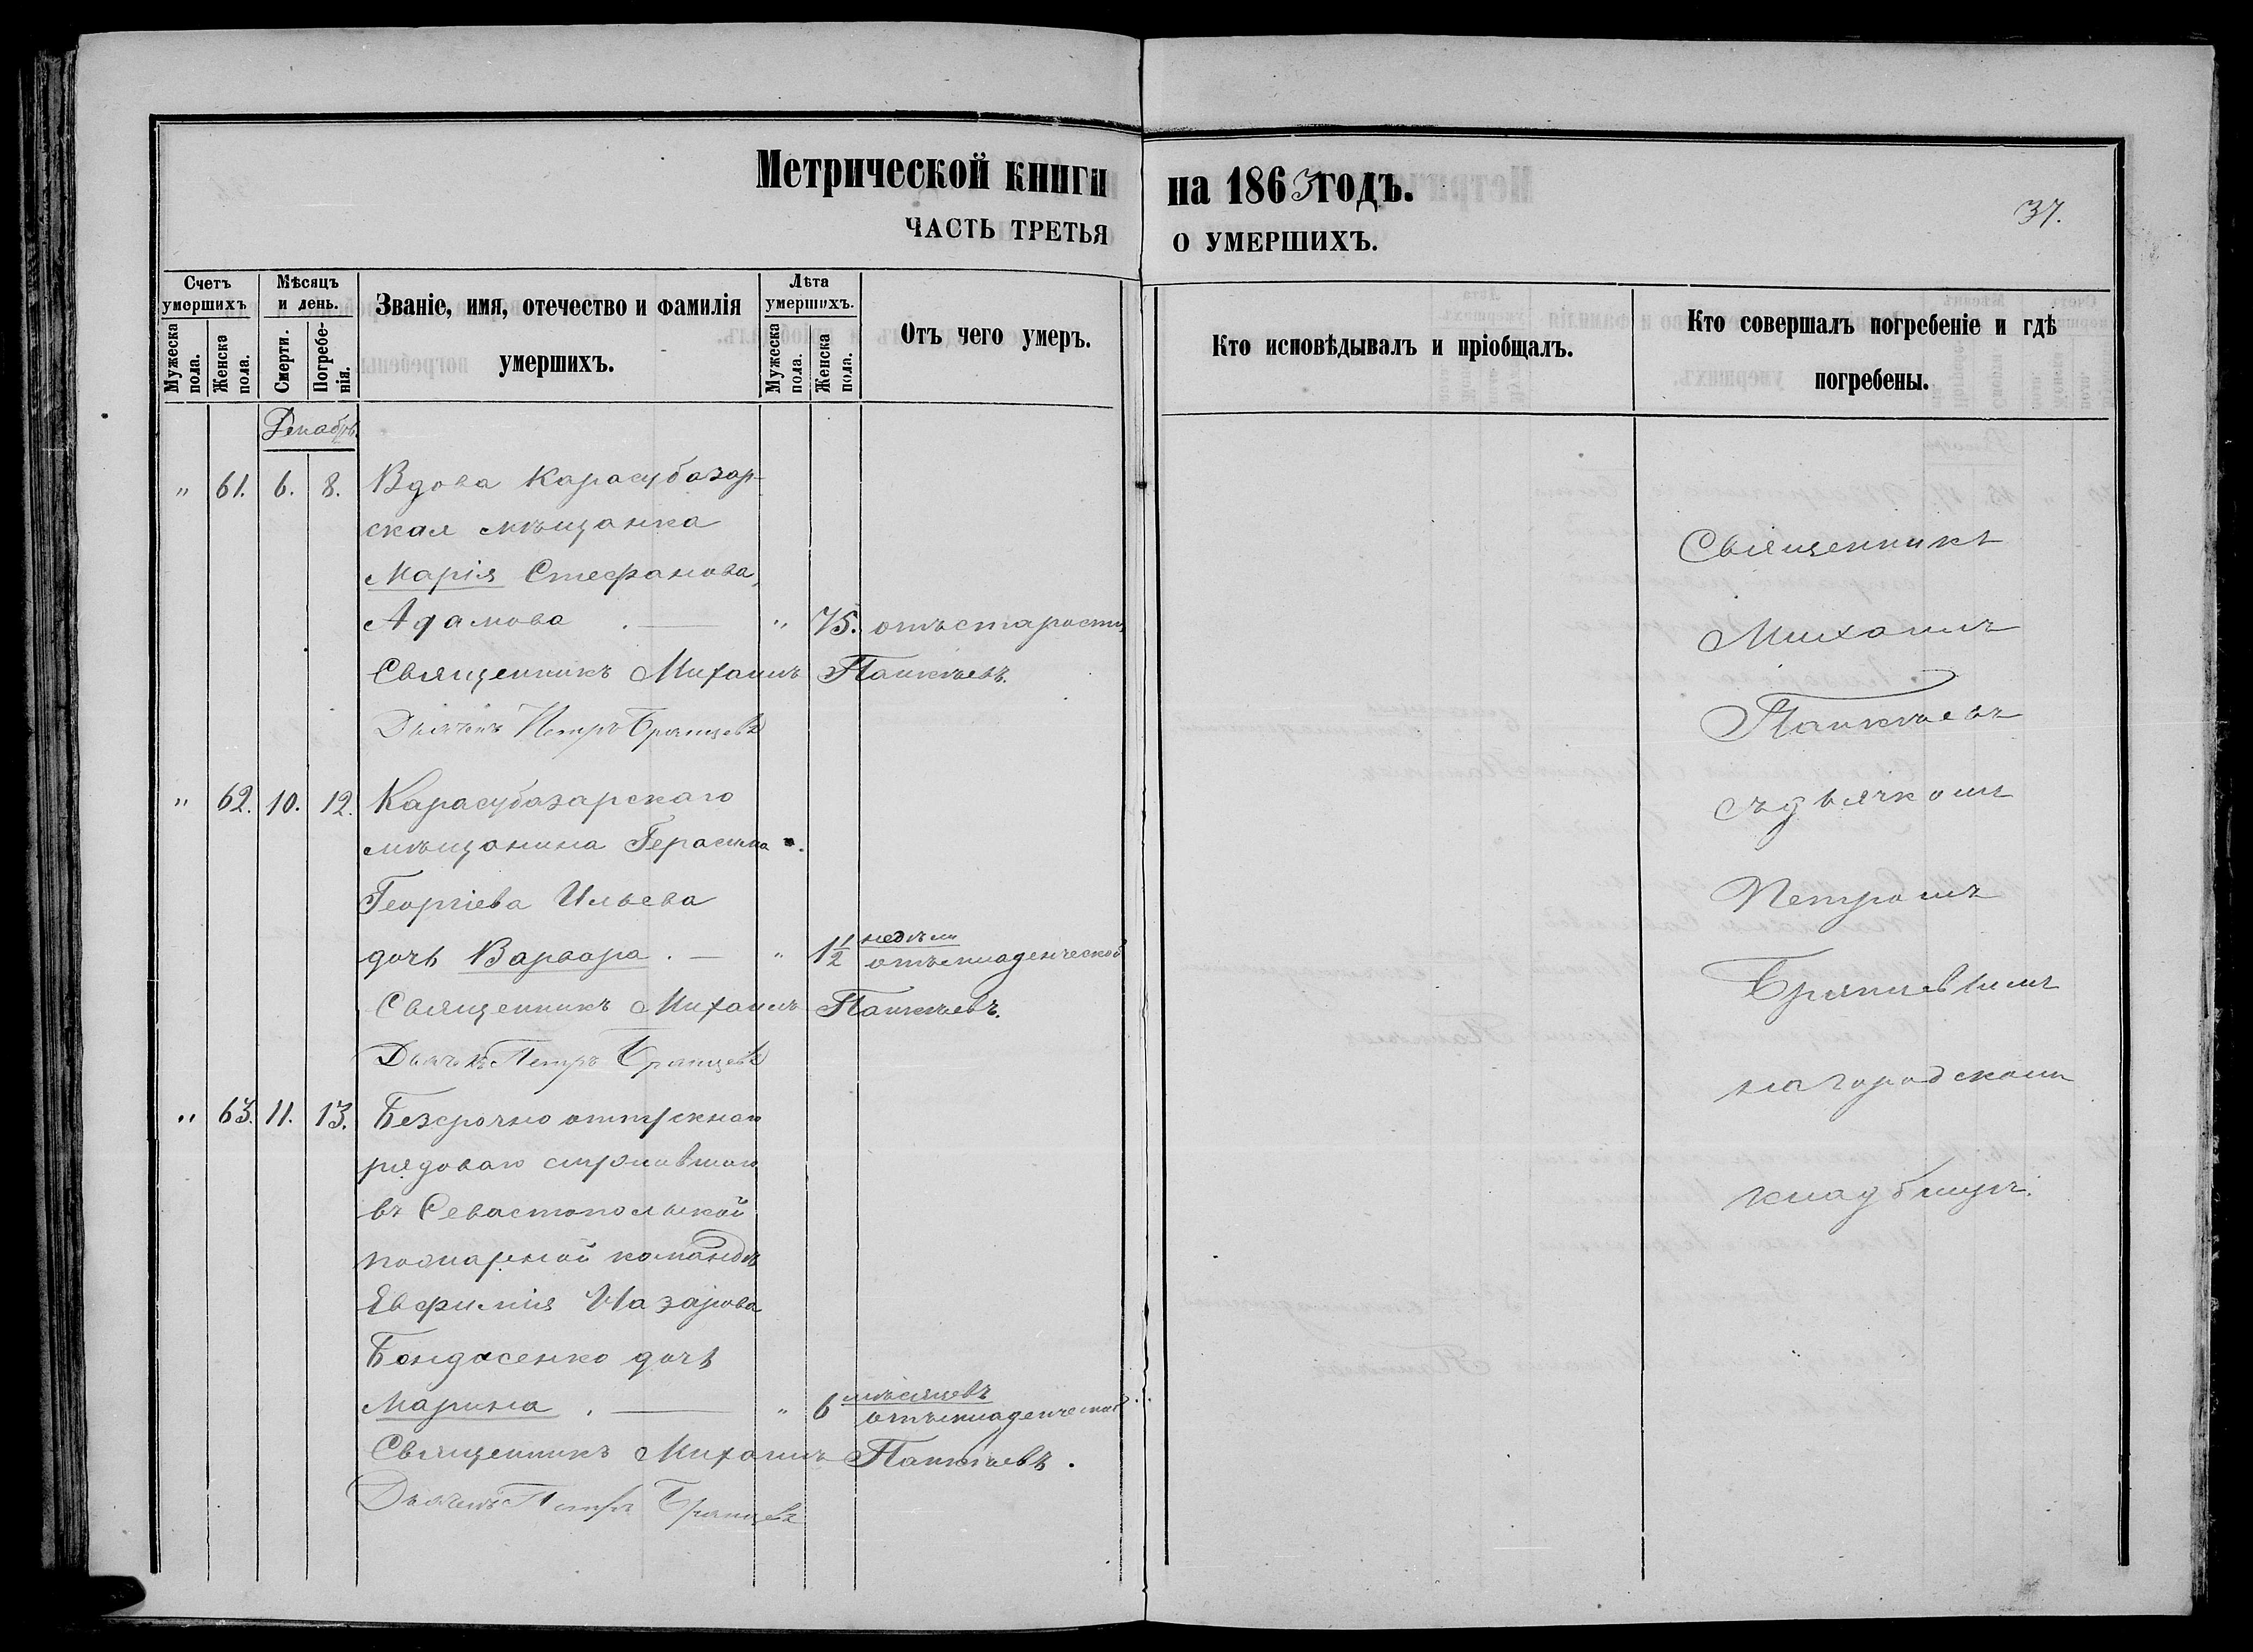 Метрической книги на 1863 годъ.
37.
ЧАСТЬ ТРЕТЬЯ О УМЕРШИХЪ.
Счетъ умершихъ
Мужеска пола.
Женска пола.
Мѣсяцъ и день.
Смерти.
Погребенія.
Званіе, имя, отечество и фамилія умершихъ.
Лѣта умершихъ.
Мужеска пола.
Женска пола.
Отъ чего умеръ.
Кто исповѣдывалъ и пріобщалъ.
Кто совершалъ погребеніе и гдѣ погребены.
Декабрь
" 61. 6. 8. Вдова Карасубазар-
ская мѣщанка
Марія Стефанова,
Адамова . — " 75. отъ старости,
Священникъ Михаилъ Панкѣевъ.
Дьячекъ Петръ Брянцевъ
" 62. 10. 12. Карасубазарскаго
мѣщанина Герасима
Георгіева Ильева
дочь Варвара . — " 1 1/2 недѣли
отъ младенческой
Священникъ Михаилъ Панкѣевъ.
Дьячекъ Петръ Брянцевъ
" 63. 11. 13. Безсрочно отпускнаго
рядоваго
въ Севастопольской
пожарной командѣ
Евфимія Назарова
дочь
Марина . — " 6 мѣсяцевъ
отъ младенческой
Священникъ Михаилъ Панкѣевъ.
Дьячекъ Петръ Брянцевъ
Священникъ
Михаилъ
Панкѣевъ
съ дьячкомъ
Петромъ
Брянцевымъ
на городскомъ
кладбищѣ.